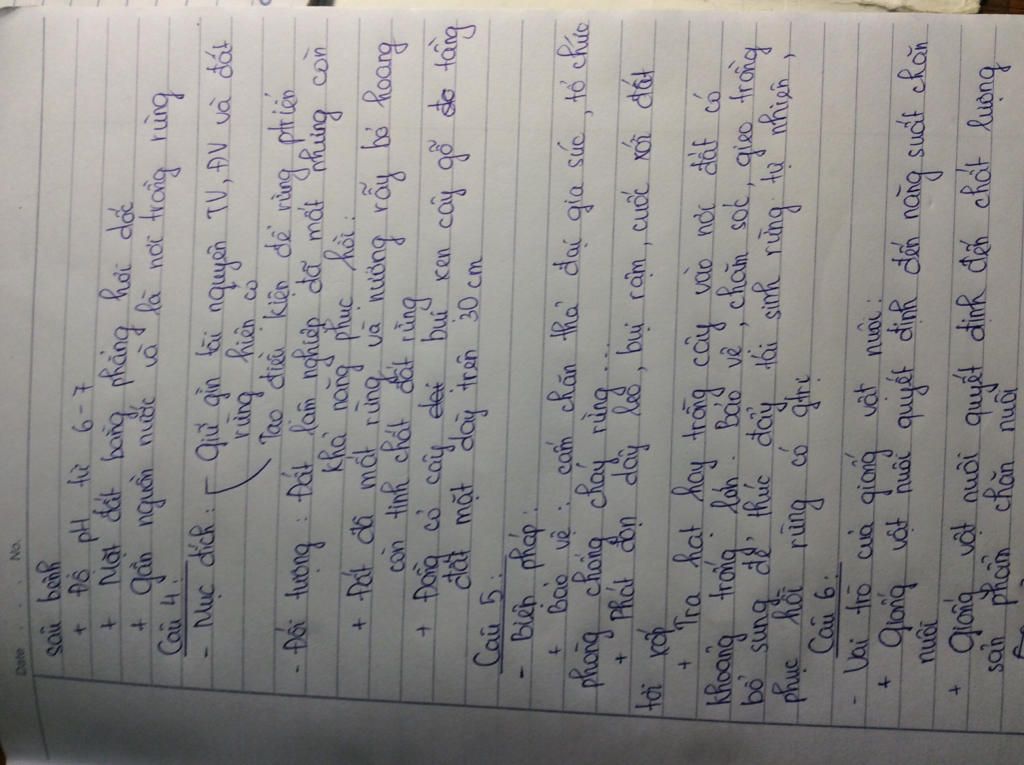 Date . . No.
sâu bệnh
+ Độ pH từ 6-7
+ Mặt đất bằng phẳng hơi dốc
+ Gần nguồn nước và là nơi trồng rừng
Câu 4:
- Mục đích: - Giữ gìn tài nguyên TV, ĐV và đất
rừng hiện có
Tạo điều kiện để rừng ptriển
- Đối tượng: Đất lâm nghiệp đã mất nhưng còn
khả năng phục hồi:
+ Đất đã mất rừng và nương rẫy bỏ hoang
còn tính chất đất rừng
+ Đồng cỏ cây bụi xen cây gỗ tầng
đất mặt dày trên 30 cm
Câu 5:
- Biện pháp:
+ Bảo vệ: cấm chăn thả đại gia súc, tổ chức
phòng chống cháy rừng...
+ Phát dọn dây leo, bụi rậm, cuốc xới đất
tơi xốp
+ Tra hạt hay trồng cây vào nơi đất có
khoảng trống lớn. Bảo vệ, chăm sóc, gieo trồng
bổ sung để thúc đẩy tái sinh rừng tự nhiên,
phục hồi rừng có gtrị
Câu 6:
- Vai trò của giống vật nuôi:
+ Giống vật nuôi quyết định đến năng suất chăn
nuôi
+ Giống vật nuôi quyết định đến chất lượng
sản phẩm chăn nuôi